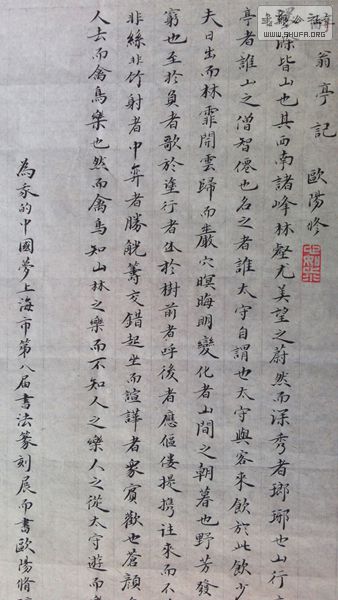 翁亭記 歐陽修
環滁皆山也其西南諸峰林壑尤美望之蔚然而深秀者瑯琊也山行
亭者誰山之僧智僊也名之者誰太守自謂也太守與客來飲於此飲少
夫日出而林霏開雲歸而巖穴暝晦明變化者山間之朝暮也野芳發
窮也至於負者歌於塗行者休於樹前者呼後者應傴僂提攜往來而不
非絲非竹射者中弈者勝觥籌交錯起坐而諠譁者衆賓歡也蒼顏
人去而禽鳥樂也然而禽鳥知山林之樂而不知人之樂人之從太守遊而
為我的中國夢上海市第八届書法篆刻展而書歐陽脩
WWW.SHUFA.ORG